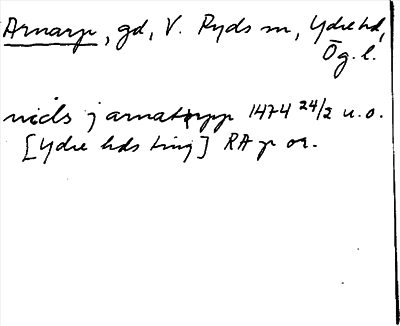 Arnarp, gd, V. Ryds sn, Ydre hd,
Ög. l.
niels j arnatorpp 1474 24/2 u.o.
[Ydre hds ting] RA p or.